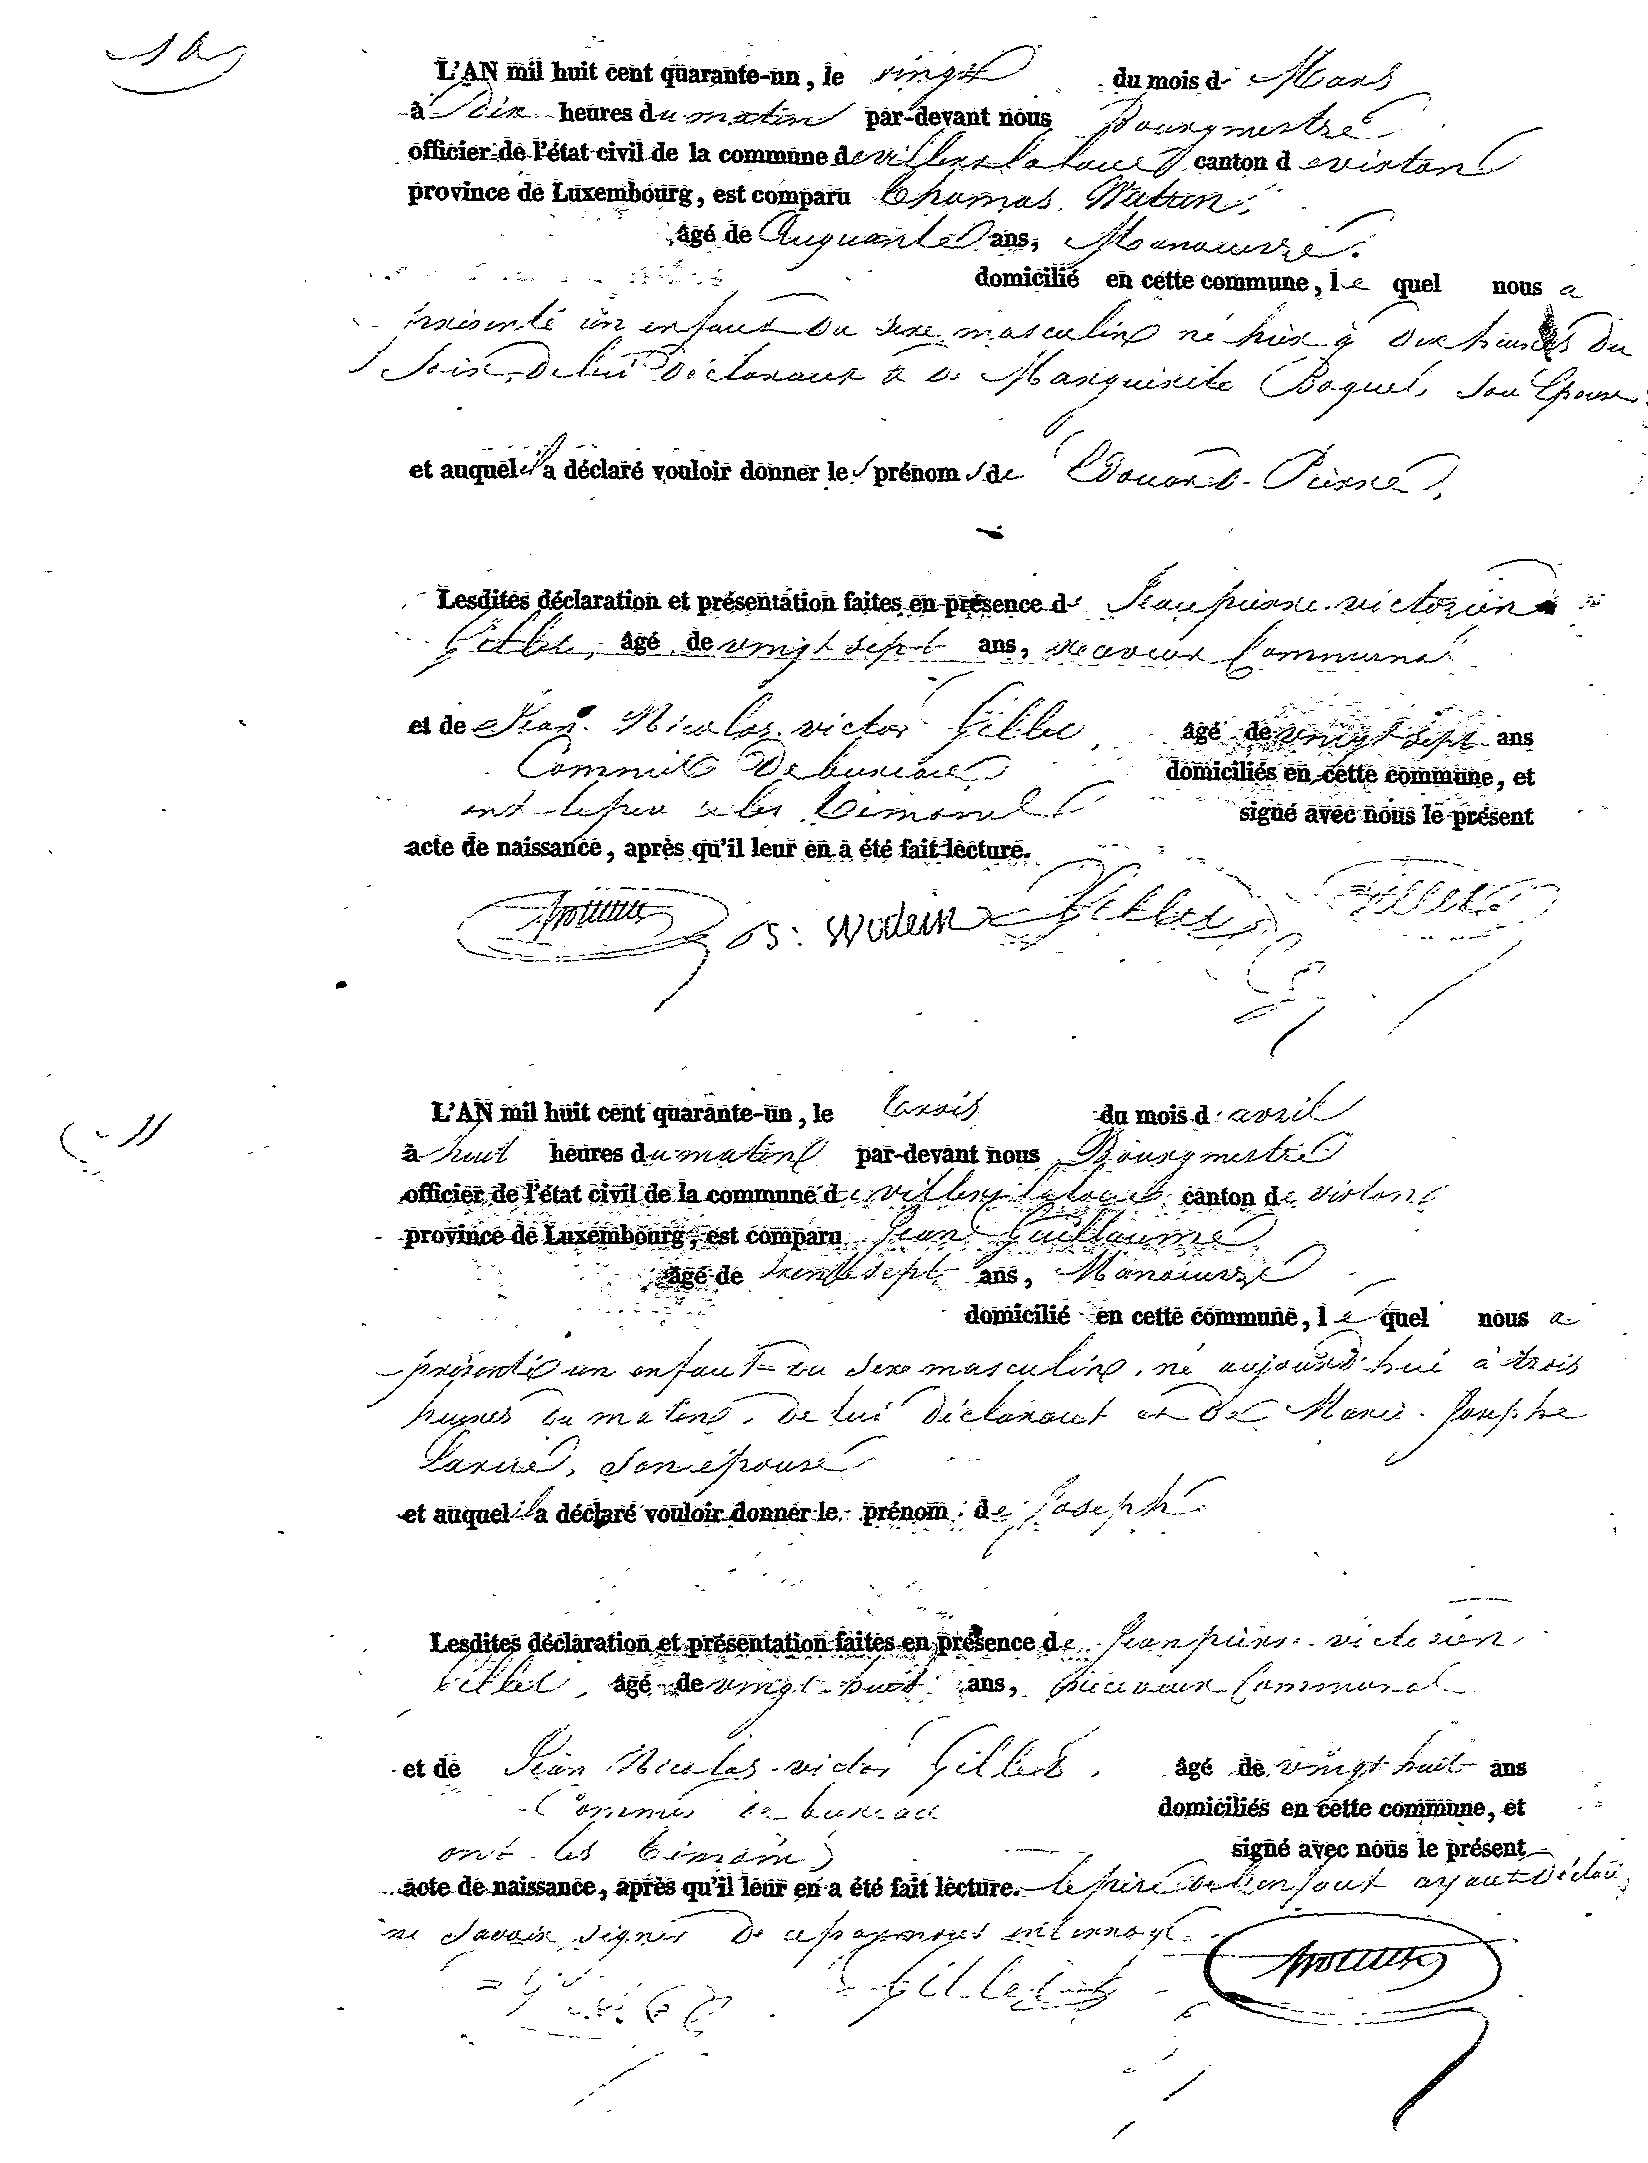 10
L'AN mil huit cent quarante-un, le vingt du mois de Mars
à Dix heures du matin par-devant nous Bourgmestre
officier de l'état civil de la commune de villers la loue canton de virton
province de Luxembourg, est comparu Thomas
âgé de Cinquante ans, Manœuvre.
domicilié en cette commune, le quel nous a
présenté un enfant du sexe masculin né hier à dix heures du
soir, de lui déclarant & de Marguerite Boquel, son Epouse
et auquel il a déclaré vouloir donner les prénoms de Edouard-Pierre.
Lesdites déclaration et présentation faites en présence de Jean pierre victorien
Gillet, âgé de vingt sept ans, receveur Communal
et de Jean Nicolas victor Gillet, âgé de vingt sept ans
Commis De bureau domiciliés en cette commune, et
ont le père & les témoins signé avec nous le présent
acte de naissance, après qu'il leur en a été fait lecture.
Gillet Gillet
11
L'AN mil huit cent quarante-un, le trois du mois d'avril
à huit heures du matin par-devant nous Bourgmestre
officier de l'état civil de la commune de villers la loue canton de virton
province de Luxembourg, est comparu Jean Guillaume
âgé de trente sept ans, Manœuvre
domicilié en cette commune, le quel nous a
présenté un enfant du sexe masculin, né aujourd'hui à trois
heures du matin, de lui déclarant et de Marie-Josephe
son épouse
et auquel il a déclaré vouloir donner le prénom de Joseph
Lesdites déclaration et présentation faites en présence de Jean pierre victorien
Gillet, âgé de vingt huit ans, receveur Communal
et de Jean Nicolas victor Gillet, âgé de vingt huit ans
Commis de bureau domiciliés en cette commune, et
ont les témoins signé avec nous le présent
acte de naissance, après qu'il leur en a été fait lecture. le père de l'enfant ayant déclaré
ne savoir signer de ce par nous interrogé.
Gillet